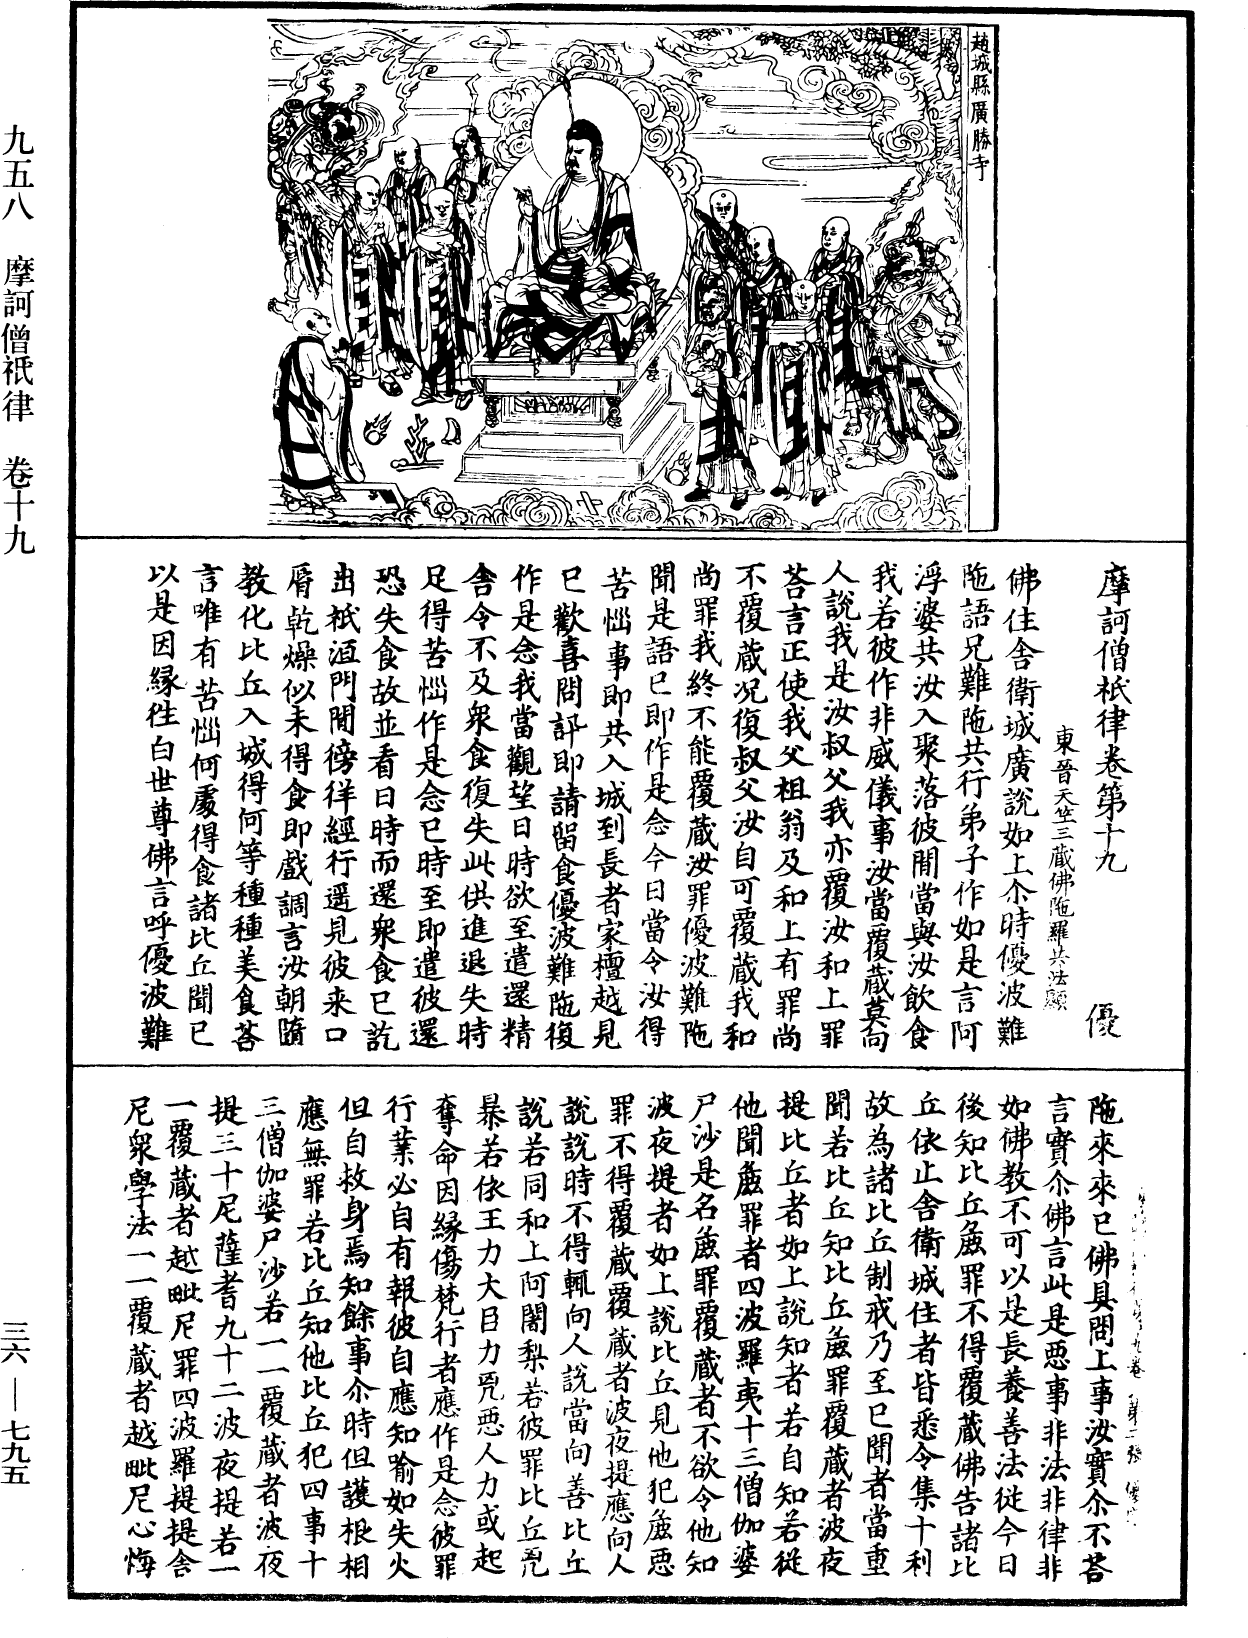 趙城縣廣勝寺
九五八 摩訶僧祇律 卷十九
三六—七九五
摩訶僧祇律卷第十九 優
東晉天竺三藏佛陁羅共法顯
佛住舍衛城廣說如上尒時優波難
陁語兄難陁共行弟子作如是言阿
浮婆共汝入聚落彼閒當與汝飲食
我若彼作非威儀事汝當覆藏莫向
人說我是汝叔父我亦覆汝和上罪
荅言正使我父祖翁及和上有罪尚
不覆藏况復叔父汝自可覆藏我和
尚罪我終不能覆藏汝罪優波難陁
聞是語已即作是念今日當令汝得
苦惱事即共入城到長者家檀越見
已歡喜問訊即請留食優波難陁復
作是念我當觀望日時欲至遣還精
舍令不及衆食復失此供進退失時
足得苦惱作是念已時至即遣彼還
恐失食故並看日時而還衆食已訖
出祇洹門閒徬徉經行遥見彼来口
脣乾燥似未得食即戲調言汝朝隨
教化比丘入城得何等種種美食荅
言唯有苦惱何處得食諸比丘聞已
以是因緣徃白世尊佛言呼優波難
陁來來已佛具問上事汝實尒不荅
言實尒佛言此是惡事非法非律非
如佛教不可以是長養善法從今日
後知比丘麁罪不得覆藏佛告諸比
丘依止舍衛城住者皆悉令集十利
故為諸比丘制戒乃至已聞者當重
聞若比丘知比丘麁罪覆藏者波夜
提比丘者如上說知者若自知若從
他聞麁罪者四波羅夷十三僧伽婆
尸沙是名麁罪覆藏者不欲令他知
波夜提者如上說比丘見他犯麁惡
罪不得覆藏覆藏者波夜提應向人
說說時不得輒向人說當向善比丘
說若同和上阿闍梨若彼罪比丘兇
暴若依王力大臣力兇惡人力或起
奪命因緣傷梵行者應作是念彼罪
行業必自有報彼自應知喻如失火
但自救身焉知餘事尒時但護根相
應無罪若比丘知他比丘犯四事十
三僧伽婆尸沙若一一覆藏者波夜
提三十尼薩耆九十二波夜提若一
一覆藏者越毗尼罪四波羅提提舍
尼衆學法一一覆藏者越毗尼心悔